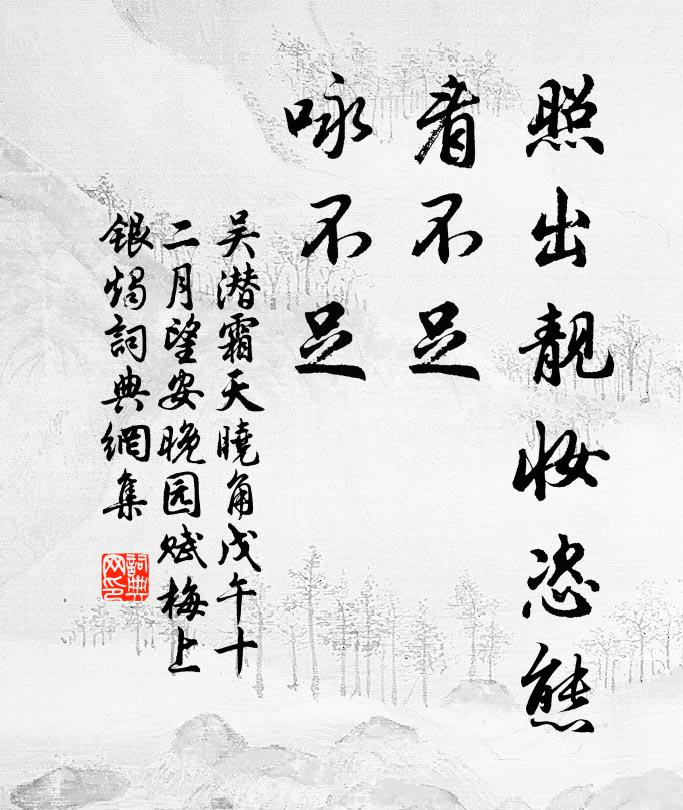 照出靓妆恣態
看不足
咏不足
吴潜霜天曉角戊午十
二月望安晚园赋梅上
银烛詞典網集
詞典
网印